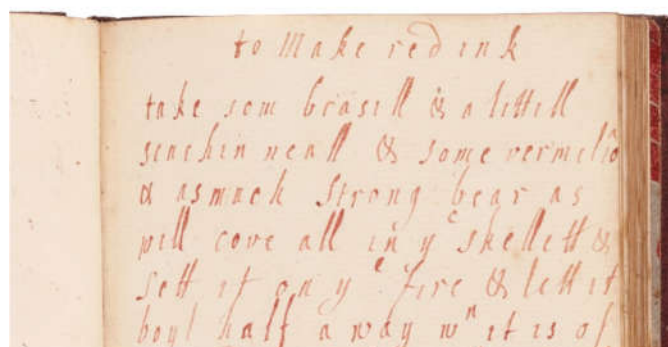 to Make red ink
take som brasill & a littill
sinchin neall & some vermilio
& as much strong bear as
will cove all in yᵉ skellett &
sett it on yᵉ fire & lett it
boyl half a way wⁿ it is of